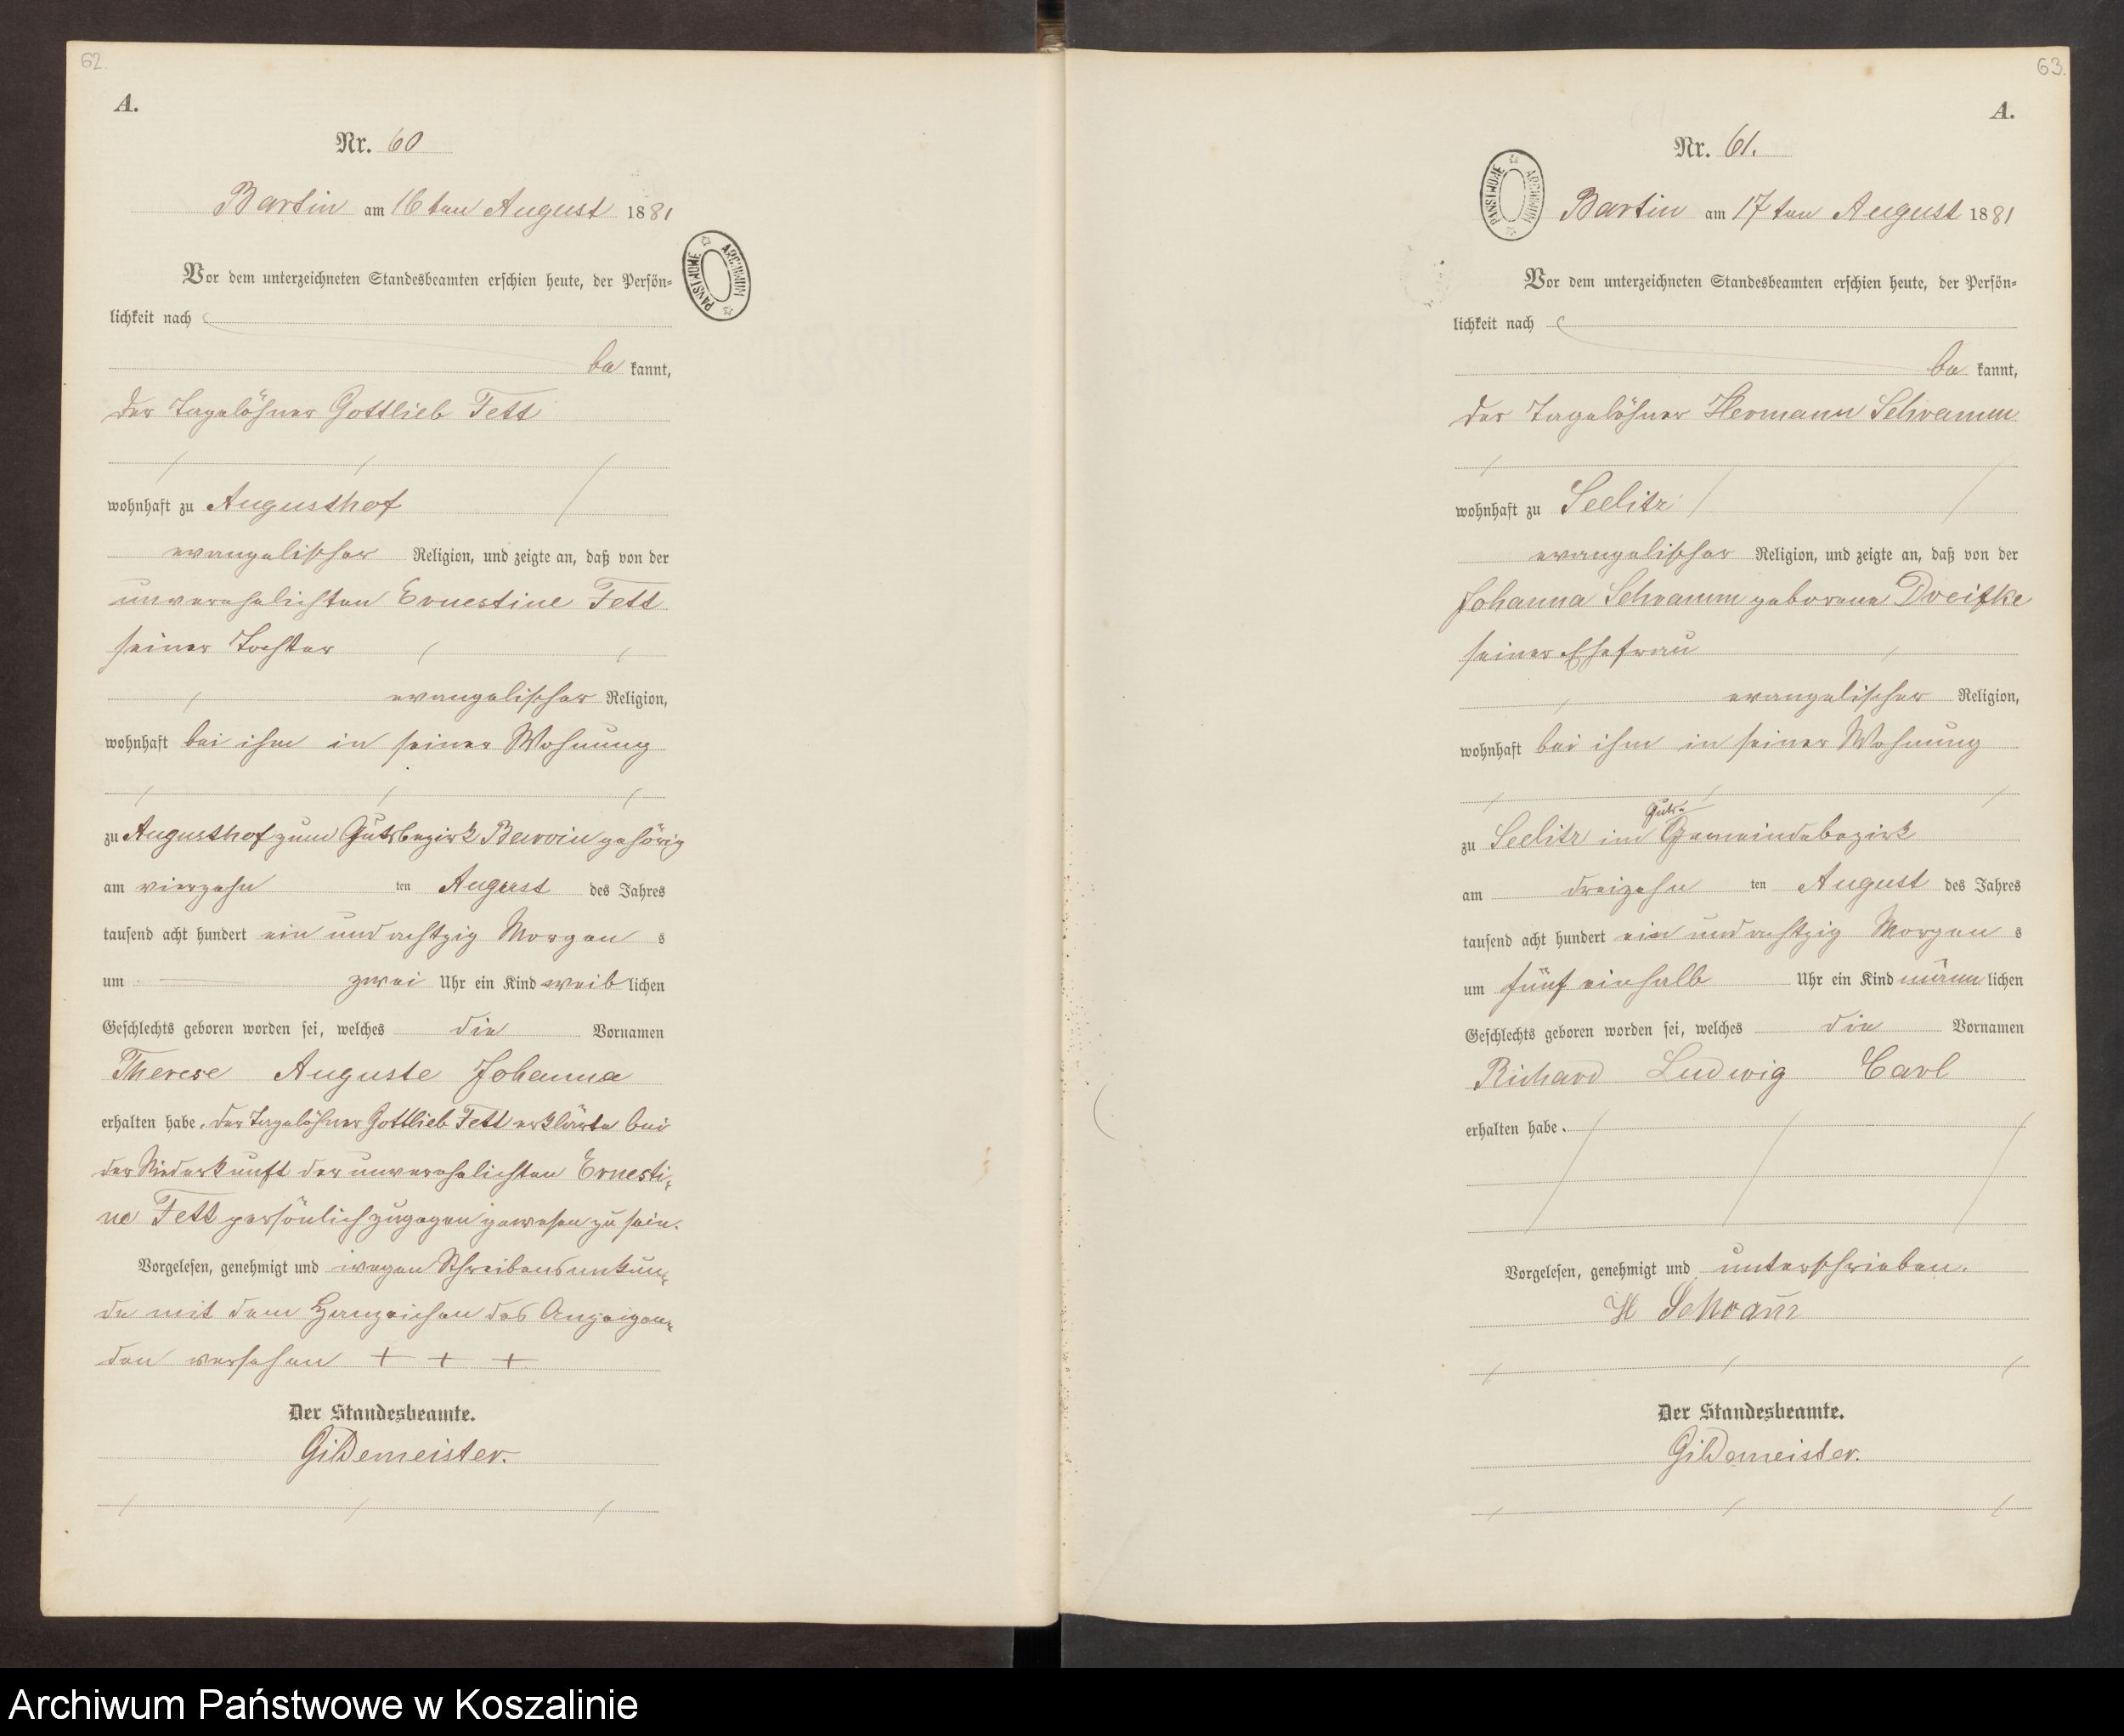 62.
A.
Nr. 60
Bartin am 16ten August 1881
ARCHIWUM PAŃSTWOWE
Vor dem unterzeichneten Standesbeamten erschien heute, der Persön-
lichkeit nach
be kannt,
der Tagelöhner Gottlieb Fett
wohnhaft zu Augusthof
evangelischer Religion, und zeigte an, daß von der
unverehelichten Ernestine Fett
seiner Tochter
evangelischer Religion,
wohnhaft bei ihm in seiner Wohnung
zu Augusthof zum Gutsbezirk Barvin gehörig
am vierzehn ten August des Jahres
tausend acht hundert ein und achtzig Morgen s
um zwei Uhr ein Kind weib lichen
Geschlechts geboren worden sei, welches die Vornamen
Therese Auguste Johanna
erhalten habe. der Tagelöhner Gottlieb Fett erklärte bei
der Niederkunft der unverehelichten Ernesti-
ne Fett persönlich zugegen gewesen zu sein.
Vorgelesen, genehmigt und wegen Schreibensunkun-
de mit dem Handzeichen des Anzeigen-
den versehen + + +
Der Standesbeamte.
Gildemeister.
63.
A.
Nr. 61.
ARCHIWUM PAŃSTWOWE
Bartin am 17ten August 1881
Vor dem unterzeichneten Standesbeamten erschien heute, der Persön-
lichkeit nach
be kannt,
der Tagelöhner Hermann Schramm
wohnhaft zu Seelitz
evangelischer Religion, und zeigte an, daß von der
Johanna Schramm geborene Dreifke
seiner Ehefrau
evangelischer Religion,
wohnhaft bei ihm in seiner Wohnung
Guts-
zu Seelitz im Gemeindebezirk
am dreizehn ten August des Jahres
tausend acht hundert ein und achtzig Morgen s
um fünf einhalb Uhr ein Kind männ lichen
Geschlechts geboren worden sei, welches die Vornamen
Richard Ludwig Carl
erhalten habe.
Vorgelesen, genehmigt und unterschrieben.
H Schram̅
Der Standesbeamte.
Gildemeister.
Archiwum Państwowe w Koszalinie